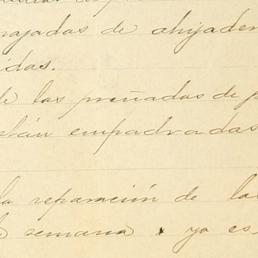 majadas de ahijader
idas.
de las preñadas de p
están empadradas
la reparación de las
semana. ya es